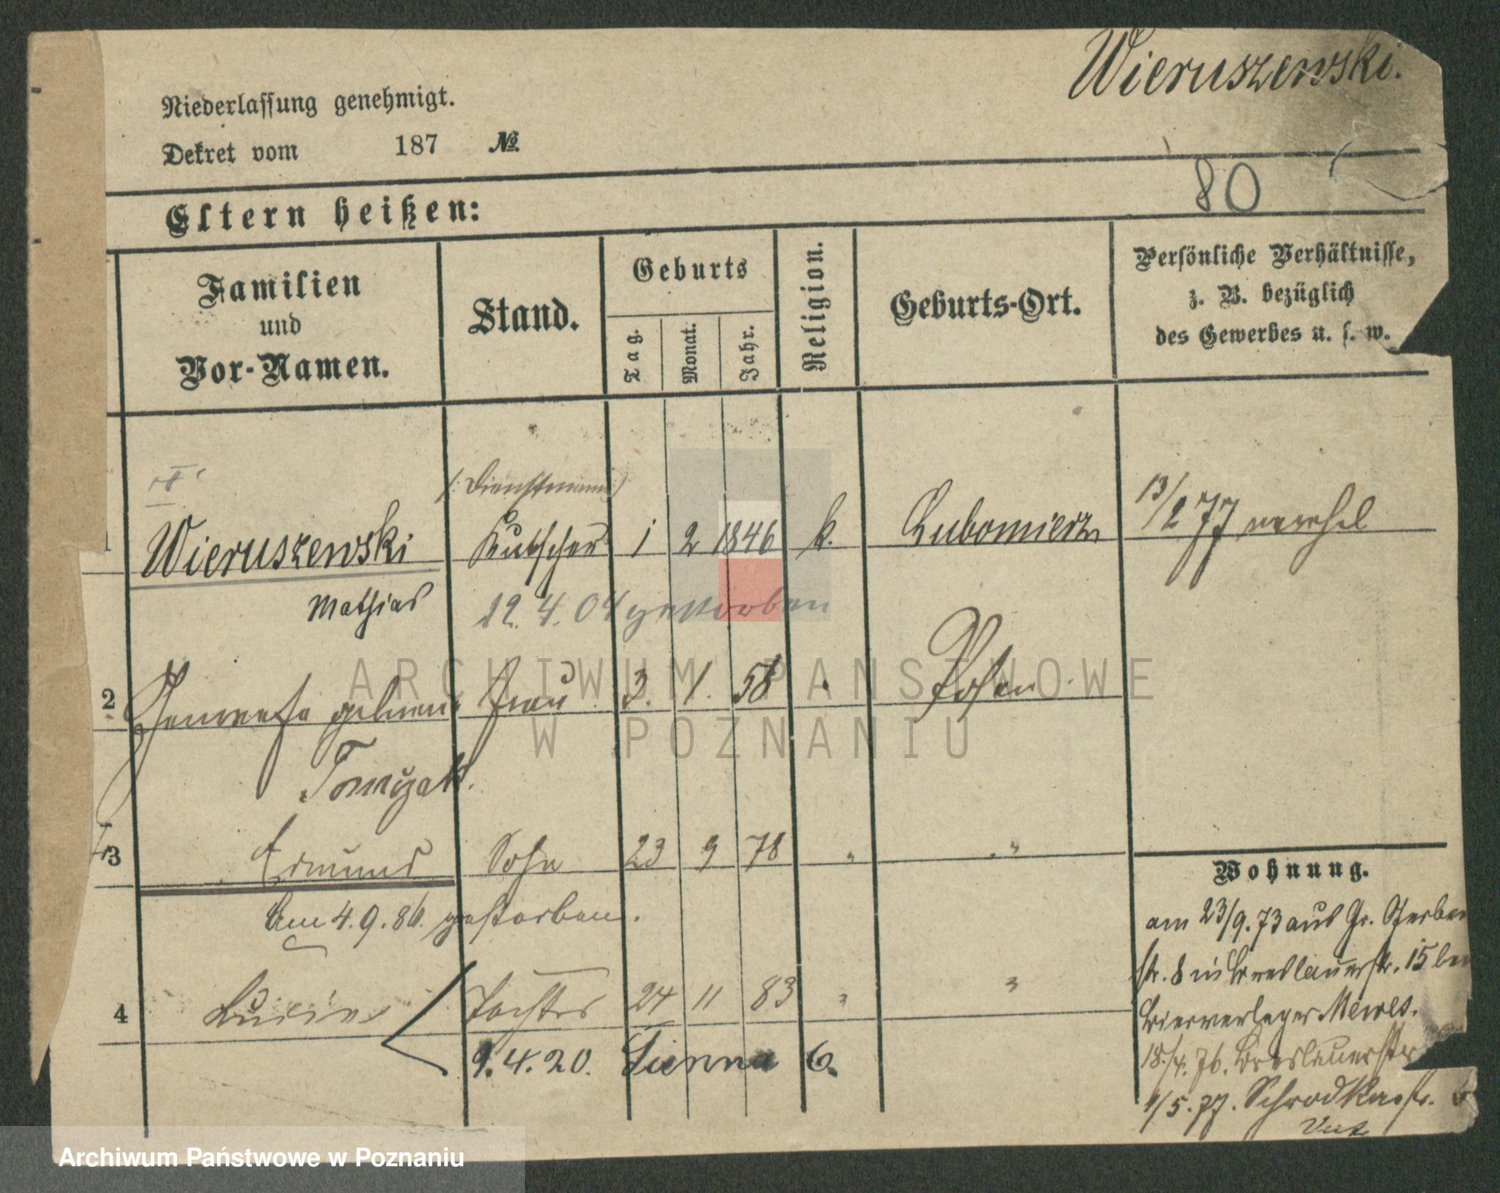 Wieruszewski.
Niederlassung genehmigt.
Dekret vom 187 №
80
Eltern heißen:
Familien
und
Vor-Namen.
Stand.
Geburts
Tag.
Monat.
Jahr.
Religion.
Geburts-Ort.
Persönliche Verhältnisse,
z. B. bezüglich
des Gewerbes u. s. w.
(: Dienstmann)
1 Wieruszewski Kutscher 1 2 1846 k. Lubomierz 13/2 77
Mathias 12. 4. 04 gestorben
2 geborene Frau 3. 1. 58 " Posen
Tomczak.
3 Edmund Sohn 23 9 78 " "
Am 4. 9. 86. gestorben.
4 Tochter 24 11 83 " "
9. 4. 20. Sienna 6.
Wohnung.
am 23/9. 73 aus Gr. Gerber
str. 8 in Breslauerstr. 15 bei
Bierverleger Mewes.
18/4. 76. Breslauerstr
1/5. 77. Schrodkastr.
ARCHIWUM PAŃSTWOWE
W POZNANIU
Archiwum Państwowe w Poznaniu